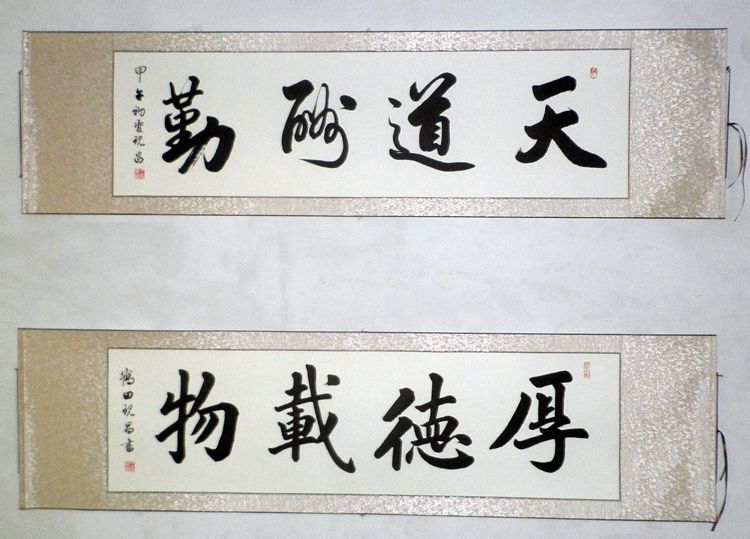 天道酬勤
甲午初夏祝昌
厚德載物
鶴田祝昌書